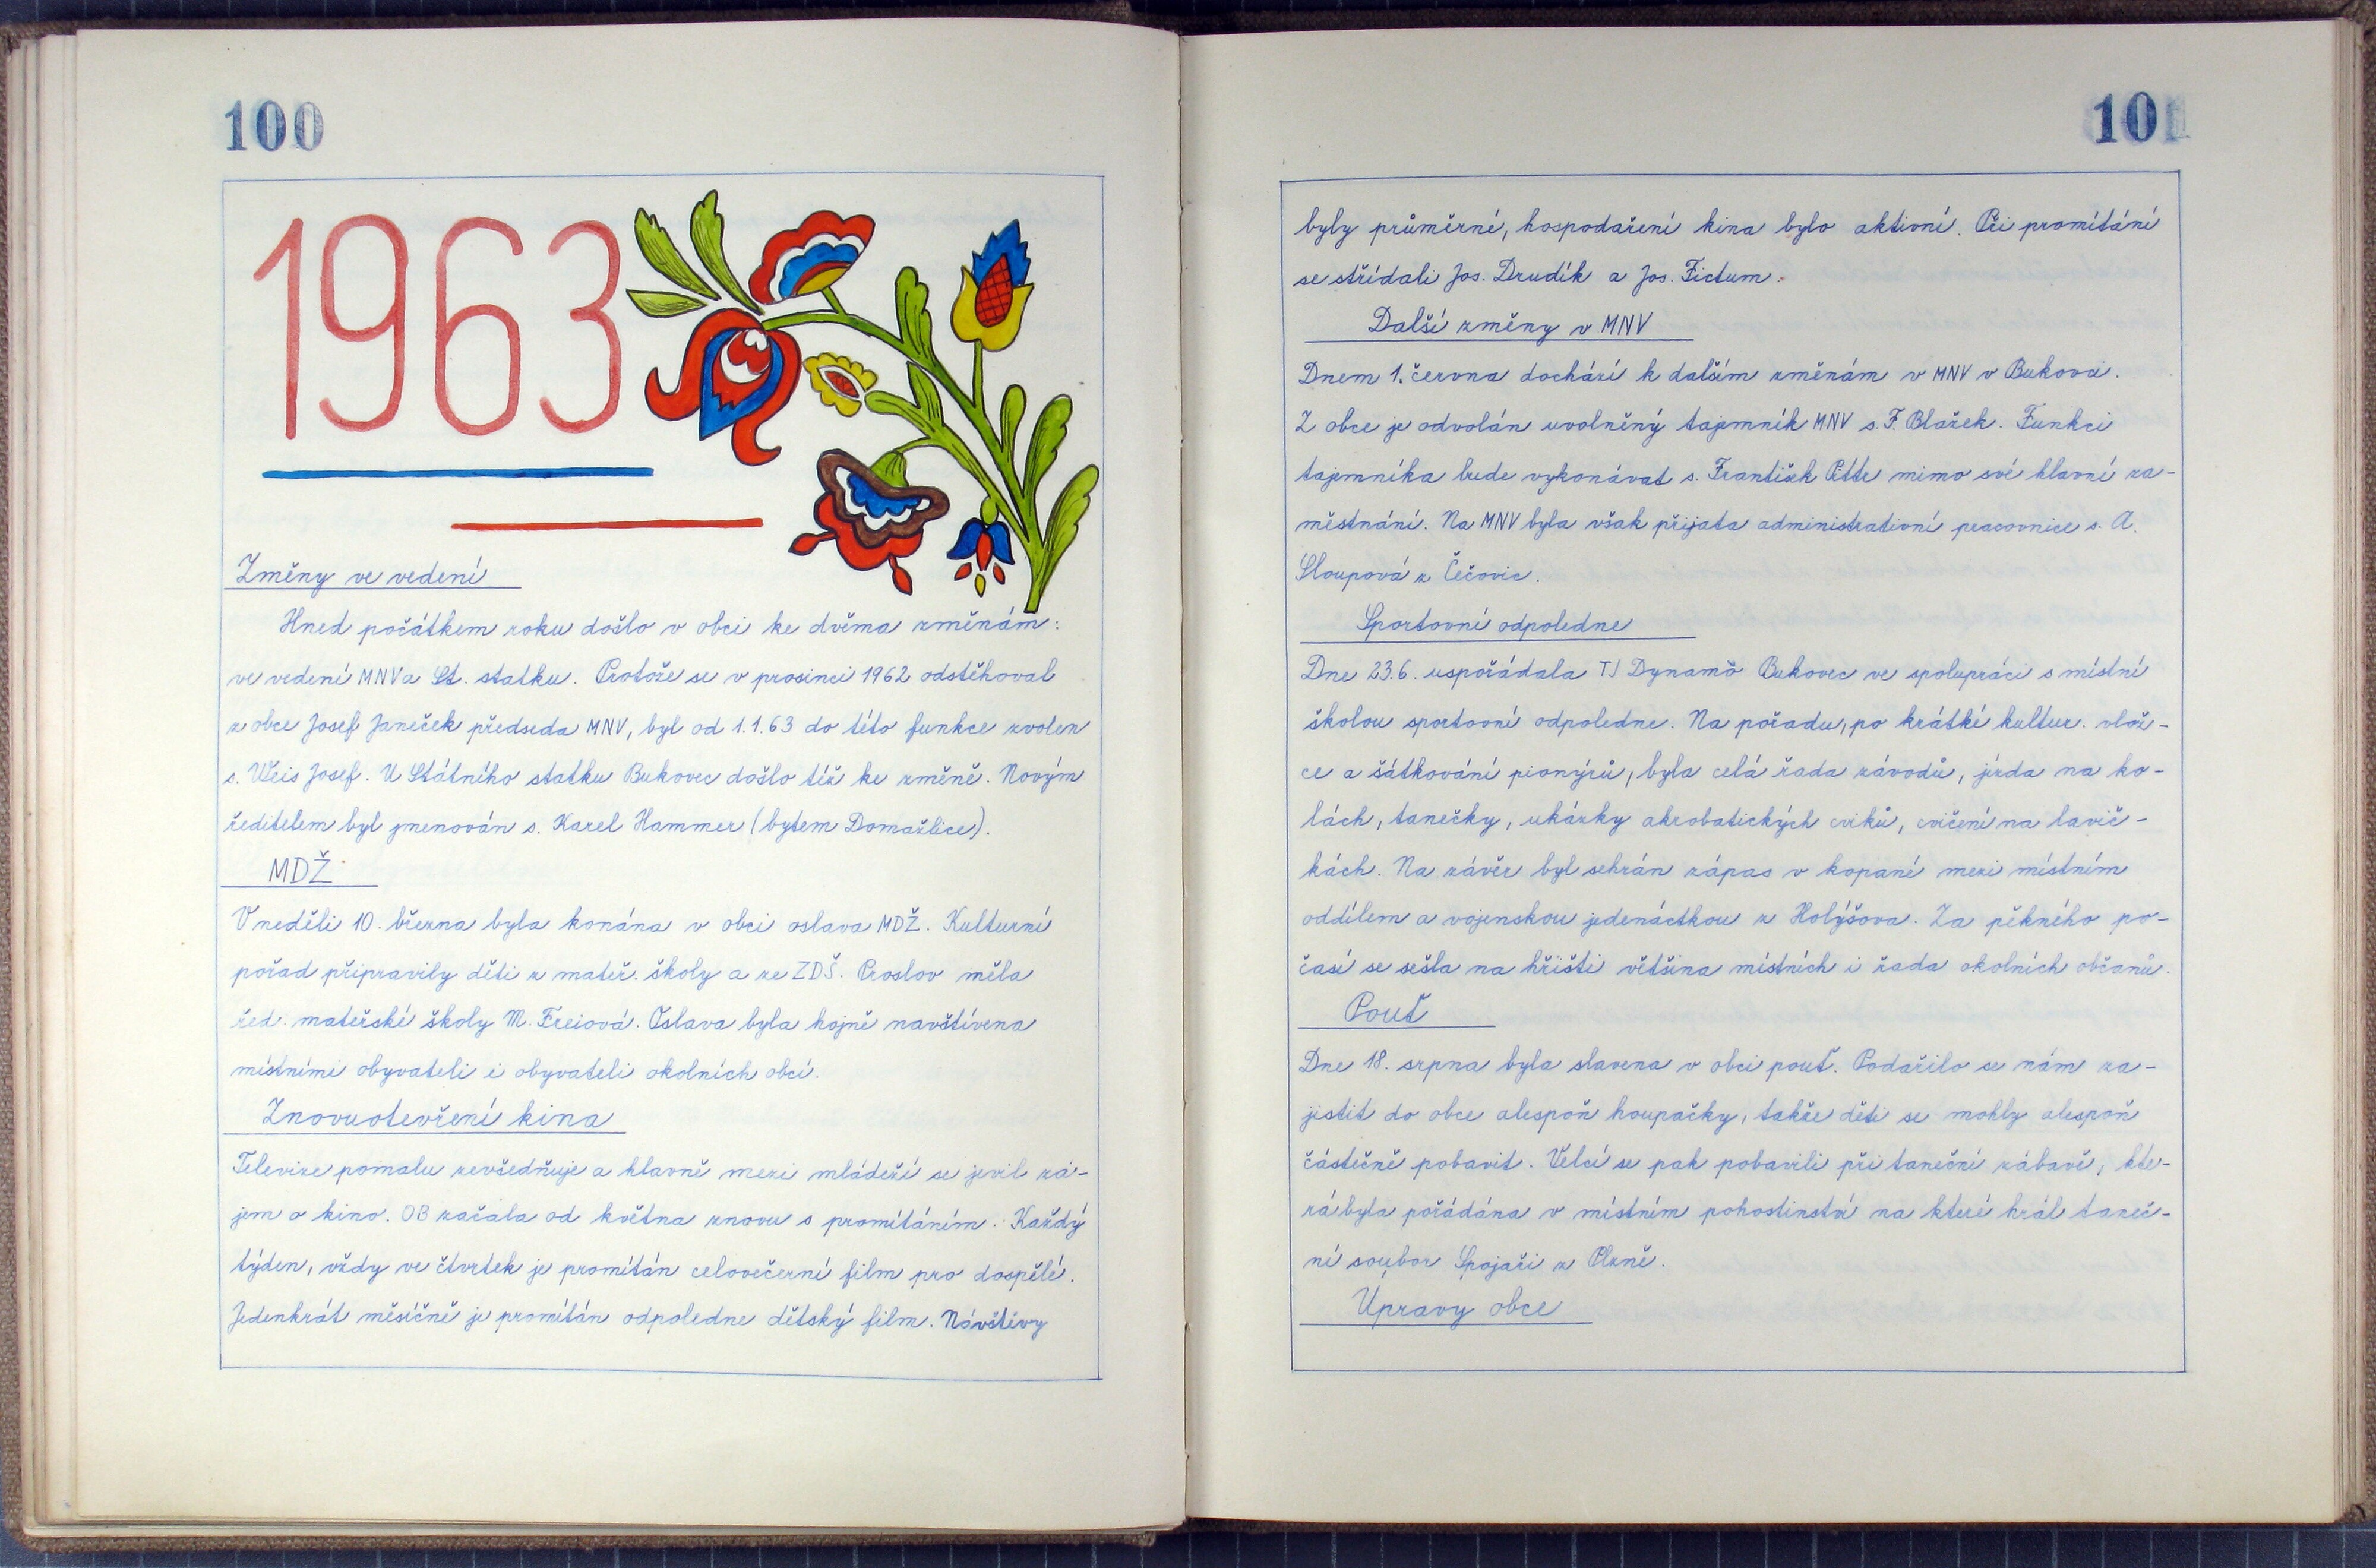 100
1963
Změny ve vedení
Hned počátkem roku došlo v obci ke dvěma změnám:
ve vedení MNV a St. statku. Protože se v prosinci 1962 odstěhoval
z obce Josef Janeček předseda MNV, byl od 1.1.63 do této funkce zvolen
s. Weis Josef. U Státního statku Bukovec došlo též ke změně. Novým
ředitelem byl jmenován s. Karel Hammer (bytem Domažlice).
MDŽ
V neděli 10. března byla konána v obci oslava MDŽ. Kulturní
pořad připravily děti z mateř. školy a ze ZDŠ. Proslov měla
řed. mateřské školy M. Freiová. Oslava byla hojně navštívena
místními obyvateli i obyvateli okolních obcí.
Znovuotevření kina
Televize pomalu zevšedňuje a hlavně mezi mládeží se jevil zá-
jem o kino. OB začala od května znovu s promítáním. Každý
týden, vždy ve čtvrtek je promítán celovečerní film pro dospělé.
Jedenkrát měsíčně je promítán odpoledne dětský film. Návštěvy
101
byly průměrné, hospodaření kina bylo aktivní. Při promítání
se střídali Jos. Drudík a Jos. Fictum.
Další změny v MNV
Dnem 1. června dochází k dalším změnám v MNV v Bukovci.
Z obce je odvolán uvolněný tajemník MNV s. F. Blažek. Funkci
tajemníka bude vykonávat s. František Pittr mimo své hlavní za-
městnání. Na MNV byla však přijata administrativní pracovnice s. A.
Sloupová z Čečovic.
Sportovní odpoledne
Dne 23.6. uspořádala TJ Dynamo Bukovec ve spolupráci s místní
školou sportovní odpoledne. Na pořadu, po krátké kultur. vlož-
ce a šátkování pionýrů, byla celá řada závodů, jízda na ko-
lách, tanečky, ukázky akrobatických cviků, cvičení na lavič-
kách. Na závěr byl sehrán zápas v kopané mezi místním
oddílem a vojenskou jedenáctkou z Holýšova. Za pěkného po-
časí se sešla na hřišti většina místních i řada okolních občanů.
Pouť
Dne 18. srpna byla slavena v obci pouť. Podařilo se nám za-
jistit do obce alespoň houpačky, takže děti se mohly alespoň
částečně pobavit. Velcí se pak pobavili při taneční zábavě, kte-
rá byla pořádána v místním pohostinství na které hrál taneč-
ní soubor Spojaři z Plzně.
Úpravy obce